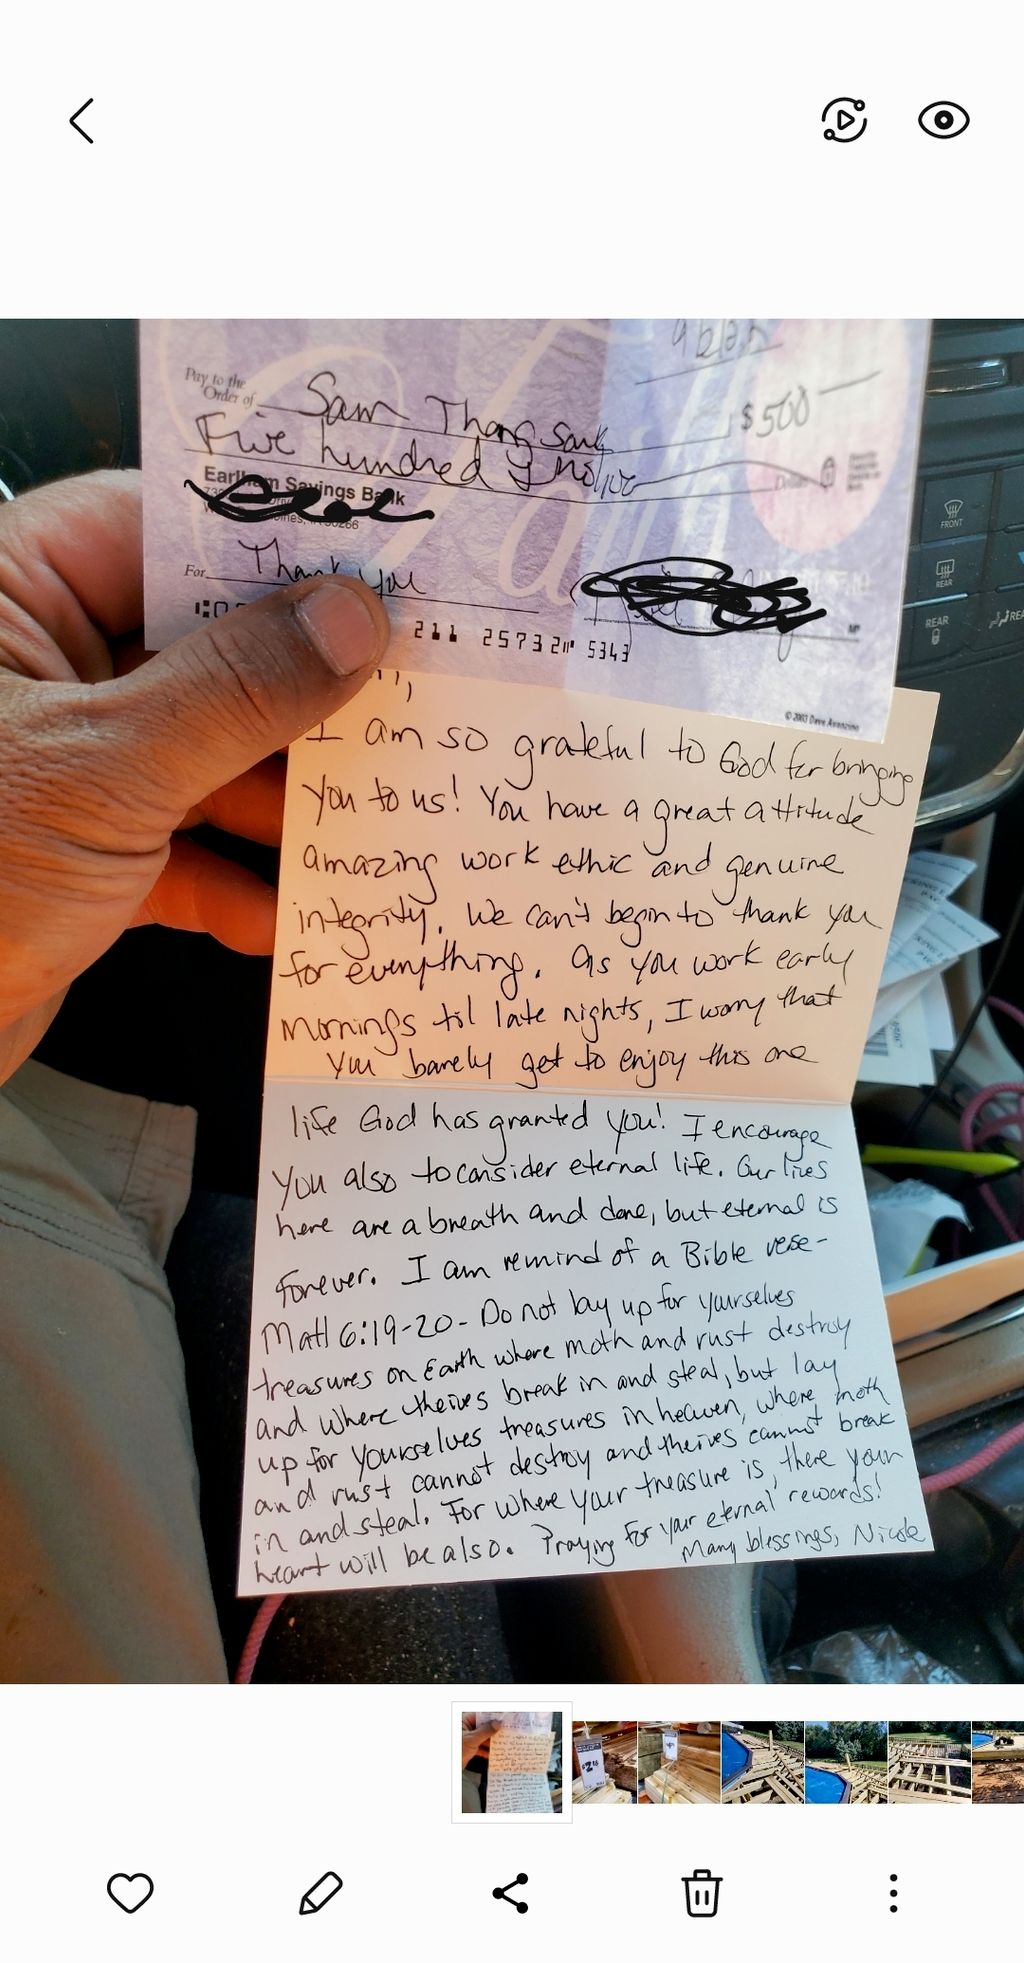 Pay to the
Order of
Sam Thong Souk
$ 500
Five hundred & no/100
Dollars
Earlham Savings Bank
For
Thank you
211 25732 5343
© 2003 Dave Avanzino
I am so grateful to God for bringing
you to us! You have a great attitude
amazing work ethic and genuine
integrity. We can't begin to thank you
for everything. As you work early
mornings til late nights, I worry that
you barely get to enjoy this one
life God has granted you! I encourage
you also to consider eternal life. Our lives
here are a breath and done, but eternal is
forever. I am remind of a Bible verse-
Matt 6:19-20 - Do not lay up for yourselves
treasures on Earth where moth and rust destroy
and where theives break in and steal, but lay
up for yourselves treasures in heaven, where moth
and rust cannot destroy and theives cannot break
in and steal. For where your treasure is, there your
heart will be also. Praying for your eternal rewards!
Many blessings, Nicole
FRONT
REAR
REAR